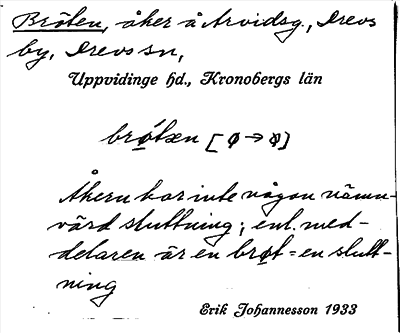 Bröten, åker å Arvidsg., Drevs
by, Drevs sn,
Uppvidinge hd., Kronobergs län
brø̀tæn [ø→ȣ]
Åkern har inte någon nämn-
värd sluttning; enl. med-
delaren är en brøt = en slutt-
ning
Erik Johannesson 1933